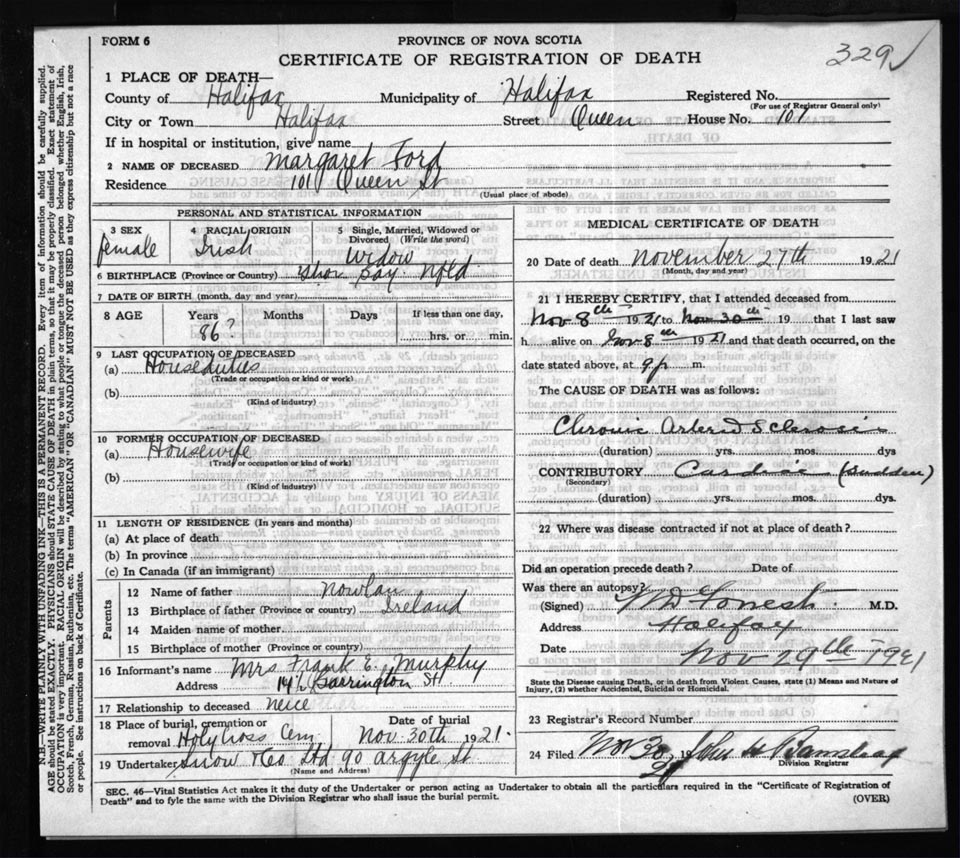 FORM 6
PROVINCE OF NOVA SCOTIA
CERTIFICATE OF REGISTRATION OF DEATH
329
1 PLACE OF DEATH—
County of Halifax Municipality of Halifax Registered No.
(For use of Registrar General only)
City or Town Halifax Street Queen House No. 101
If in hospital or institution, give name
2 NAME OF DECEASED Margaret Ford
Residence 101 Queen St
(Usual place of abode)
PERSONAL AND STATISTICAL INFORMATION
3 SEX female
4 RACIAL ORIGIN Irish
5 Single, Married, Widowed or Divorced (Write the word) Widow
6 BIRTHPLACE (Province or Country) Bay Nfld
7 DATE OF BIRTH (month, day and year)
8 AGE Years Months Days If less than one day,
86? hrs. or min.
9 LAST OCCUPATION OF DECEASED
(a) House duties
(Trade or occupation or kind of work)
(b)
(Kind of industry)
10 FORMER OCCUPATION OF DECEASED
(a) Housewife
(Trade or occupation or kind of work)
(b)
(Kind of industry)
11 LENGTH OF RESIDENCE (In years and months)
(a) At place of death
(b) In province
(c) In Canada (if an immigrant)
Parents
12 Name of father Nowlan
13 Birthplace of father (Province or country) Ireland
14 Maiden name of mother
15 Birthplace of mother (Province or country)
16 Informant's name Mrs. Frank E. Murphy
Address Barrington St.
17 Relationship to deceased neice
18 Place of burial, cremation or removal Holy Cross Cem Date of burial Nov 30th 1921.
19 Undertaker Snow & Co Ltd 90 Argyle St.
(Name and Address)
MEDICAL CERTIFICATE OF DEATH
20 Date of death November 27th 1921
(Month, day and year)
21 I HEREBY CERTIFY, that I attended deceased from
Nov 8th 1921 to Nov 30th 19 that I last saw
h alive on Nov 8th 1921 and that death occurred, on the
date stated above, at 9 p m.
The CAUSE OF DEATH was as follows:
Chronic Arterio Sclerosis
(duration) yrs. mos. dys.
CONTRIBUTORY Cardiac (sudden)
(Secondary)
(duration) yrs. mos. dys.
22 Where was disease contracted if not at place of death?
Did an operation precede death? Date of
Was there an autopsy?
(Signed) M.D.
Address Halifax
Date Nov 29th 1921
State the Disease causing Death, or in death from Violent Causes, state (1) Means and Nature of Injury, (2) whether Accidental, Suicidal or Homicidal.
23 Registrar's Record Number
24 Filed Nov 30 19 21 John H Barnstead
Division Registrar
SEC. 46—Vital Statistics Act makes it the duty of the Undertaker or person acting as Undertaker to obtain all the particulars required in the "Certificate of Registration of
Death" and to fyle the same with the Division Registrar who shall issue the burial permit.
(OVER)
N.B.—WRITE PLAINLY WITH UNFADING INK—THIS IS A PERMANENT RECORD. Every item of information should be carefully supplied.
AGE should be stated EXACTLY. PHYSICIANS should STATE CAUSE OF DEATH in plain terms, so that it may be properly classified. Exact statement of
OCCUPATION is very important. RACIAL ORIGIN will be described by stating to what people or tongue the deceased person belonged whether English, Irish,
Scotch, French, German, Russian, Ruthenian, etc. The terms "AMERICAN" OR "CANADIAN" MUST NOT BE USED as they express citizenship but not a race
or people. See instructions on back of Certificate.